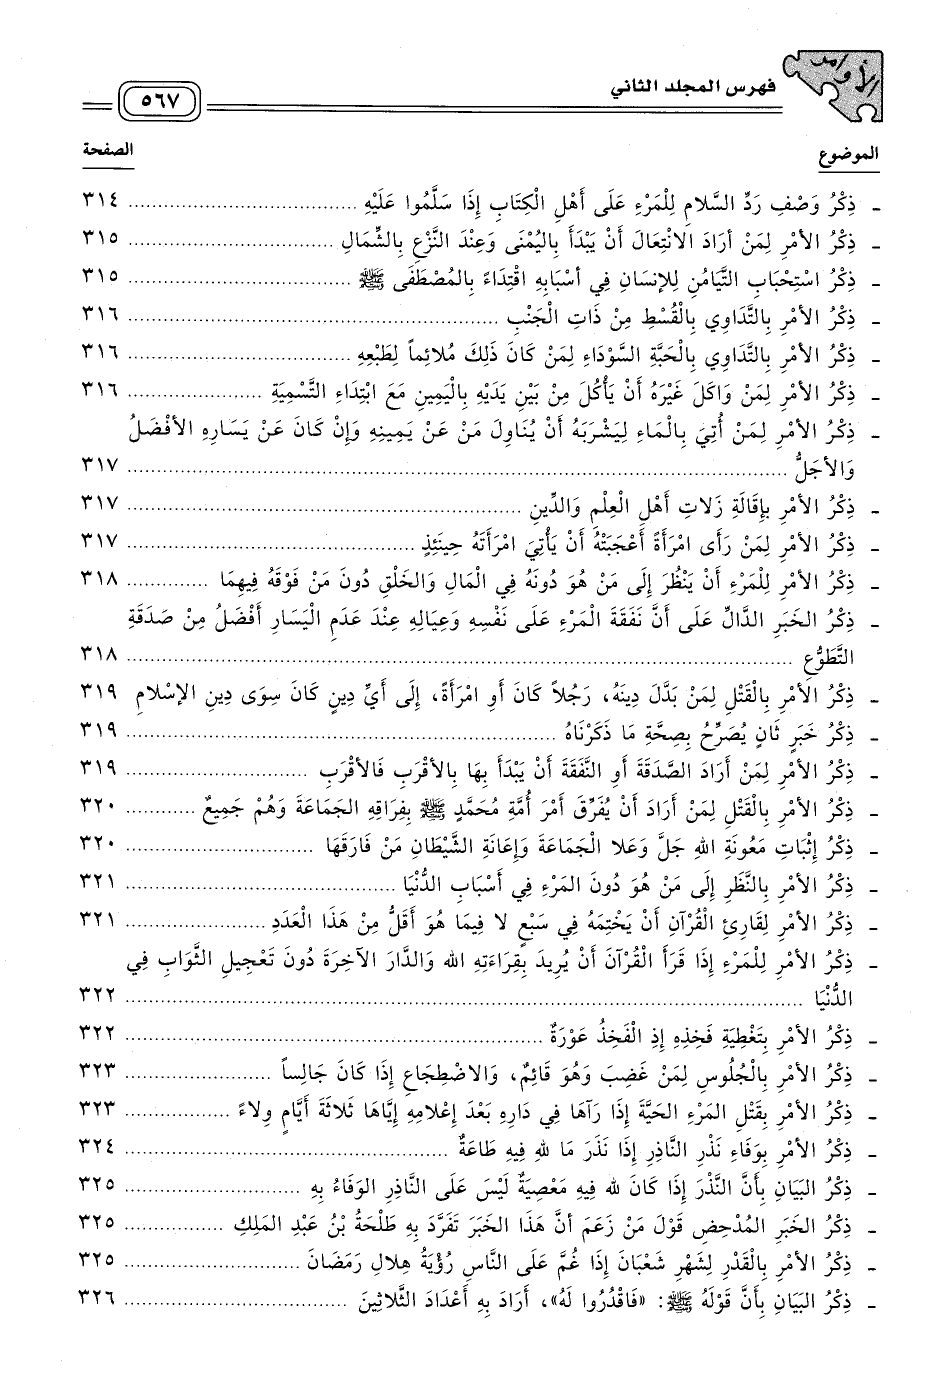 الأوامر
فهرس المجلد الثاني
٥٦٧
الموضوع الصفحة
- ذِكْرُ وَصْفِ رَدِّ السَّلامِ لِلْمَرْءِ عَلَى أَهْلِ الْكِتَابِ إِذَا سَلَّمُوا عَلَيْهِ ................ ٣١٤
- ذِكْرُ الأمْرِ لِمَنْ أرَادَ الانْتِعَالَ أَنْ يَبْدَأَ بِاليُمْنَى وَعِنْدَ النَّزْعِ بِالشِّمَالِ ................ ٣١٥
- ذِكْرُ اسْتِحْبَابِ التَّيَامُنِ لِلإنسَانِ فِي أسْبَابِهِ اقْتِدَاءً بِالمُصْطَفَى ﷺ ................ ٣١٥
- ذِكْرُ الأمْرِ بِالتَّدَاوِي بِالْقُسْطِ مِنْ ذَاتِ الْجَنْبِ ................ ٣١٦
- ذِكْرُ الأمْرِ بِالتَّدَاوِي بِالْحَبَّةِ السَّوْدَاءِ لِمَنْ كَانَ ذَلِكَ مُلائِماً لِطَبْعِهِ ................ ٣١٦
- ذِكْرُ الأمْرِ لِمَنْ وَاكَلَ غَيْرَهُ أَنْ يَأْكُلَ مِنْ بَيْنِ يَدَيْهِ بِالْيَمِينِ مَعَ ابْتِدَاءِ التَّسْمِيَةِ ................ ٣١٦
- ذِكْرُ الأمْرِ لِمَنْ أُتِيَ بِالْمَاءِ لِيَشْرَبَهُ أَنْ يُنَاوِلَ مَنْ عَنْ يَمِينِهِ وَإِنْ كَانَ عَنْ يَسَارِهِ الأفْضَلُ
وَالأجَلُّ ................ ٣١٧
- ذِكْرُ الأمْرِ بِإِقَالَةِ زَلاتِ أَهْلِ الْعِلْمِ وَالدِّينِ ................ ٣١٧
- ذِكْرُ الأمْرِ لِمَنْ رَأَى امْرَأَةً أَعْجَبَتْهُ أَنْ يَأْتِيَ امْرَأَتَهُ حِينَئِذٍ ................ ٣١٧
- ذِكْرُ الأمْرِ لِلْمَرْءِ أَنْ يَنْظُرَ إِلَى مَنْ هُوَ دُونَهُ فِي الْمَالِ وَالخَلْقِ دُونَ مَنْ فَوْقَهُ فِيهِمَا ............ ٣١٨
- ذِكْرُ الخَبَرِ الدَّالِّ عَلَى أَنَّ نَفَقَةَ الْمَرْءِ عَلَى نَفْسِهِ وَعِيَالِهِ عِنْدَ عَدَمِ الْيَسَارِ أَفْضَلُ مِنْ صَدَقَةِ
التَّطَوُّعِ ................ ٣١٨
- ذِكْرُ الأمْرِ بِالْقَتْلِ لِمَنْ بَدَّلَ دِينَهُ، رَجُلاً كَانَ أَوِ امْرَأَةً، إِلَى أَيِّ دِينٍ كَانَ سِوَى دِينِ الإسْلامِ ٣١٩
- ذِكْرُ خَبَرٍ ثَانٍ يُصَرِّحُ بِصِحَّةِ مَا ذَكَرْنَاهُ ................ ٣١٩
- ذِكْرُ الأمْرِ لِمَنْ أَرَادَ الصَّدَقَةَ أَوِ النَّفَقَةَ أَنْ يَبْدَأَ بِهَا بِالأقْرَبِ فَالأقْرَبِ ................ ٣١٩
- ذِكْرُ الأمْرِ بِالْقَتْلِ لِمَنْ أَرَادَ أَنْ يُفَرِّقَ أَمْرَ أُمَّةِ مُحَمَّدٍ ﷺ بِفِرَاقِهِ الجَمَاعَةَ وَهُمْ جَمِيعٌ ......... ٣٢٠
- ذِكْرُ إِثْبَاتِ مَعُونَةِ اللهِ جَلَّ وَعَلا الْجَمَاعَةَ وَإِعَانَةِ الشَّيْطَانِ مَنْ فَارَقَهَا ................ ٣٢٠
- ذِكْرُ الأمْرِ بِالنَّظَرِ إِلَى مَنْ هُوَ دُونَ المَرْءِ فِي أَسْبَابِ الدُّنْيَا ................ ٣٢١
- ذِكْرُ الأمْرِ لِقَارِئِ الْقُرْآنِ أَنْ يَخْتِمَهُ فِي سَبْعٍ لا فِيمَا هُوَ أَقَلُّ مِنْ هَذَا الْعَدَدِ ................ ٣٢١
- ذِكْرُ الأمْرِ لِلْمَرْءِ إِذَا قَرَأَ الْقُرْآنَ أَنْ يُرِيدَ بِقِرَاءَتِهِ اللهَ وَالدَّارَ الآخِرَةَ دُونَ تَعْجِيلِ الثَّوَابِ فِي
الدُّنْيَا ................ ٣٢٢
- ذِكْرُ الأمْرِ بِتَغْطِيَةِ فَخِذِهِ إِذِ الْفَخِذُ عَوْرَةٌ ................ ٣٢٢
- ذِكْرُ الأمْرِ بِالْجُلُوسِ لِمَنْ غَضِبَ وَهُوَ قَائِمٌ، وَالاضْطِجَاعِ إِذَا كَانَ جَالِساً ................ ٣٢٣
- ذِكْرُ الأمْرِ بِقَتْلِ المَرْءِ الحَيَّةَ إِذَا رَآهَا فِي دَارِهِ بَعْدَ إِعْلامِهِ إِيَّاهَا ثَلاثَةَ أَيَّامٍ وِلاءً ............ ٣٢٣
- ذِكْرُ الأمْرِ بِوَفَاءِ نَذْرِ النَّاذِرِ إِذَا نَذَرَ مَا للهِ فِيهِ طَاعَةٌ ................ ٣٢٤
- ذِكْرُ البَيَانِ بِأَنَّ النَّذْرَ إِذَا كَانَ لله فِيهِ مَعْصِيَةٌ لَيْسَ عَلَى النَّاذِرِ الوَفَاءُ بِهِ ................ ٣٢٥
- ذِكْرُ الخَبَرِ المُدْحِضِ قَوْلَ مَنْ زَعَمَ أنَّ هَذَا الخَبَرَ تَفَرَّدَ بِهِ طَلْحَةُ بْنُ عَبْدِ المَلِكِ ............ ٣٢٥
- ذِكْرُ الأمْرِ بِالْقَدْرِ لِشَهْرِ شَعْبَانَ إِذَا غُمَّ عَلَى النَّاسِ رُؤْيَةُ هِلالِ رَمَضَانَ ................ ٣٢٥
- ذِكْرُ البَيَانِ بِأَنَّ قَوْلَهُ ﷺ: «فَاقْدُرُوا لَهُ»، أَرَادَ بِهِ أَعْدَادَ الثَّلاثِينَ ................ ٣٢٦